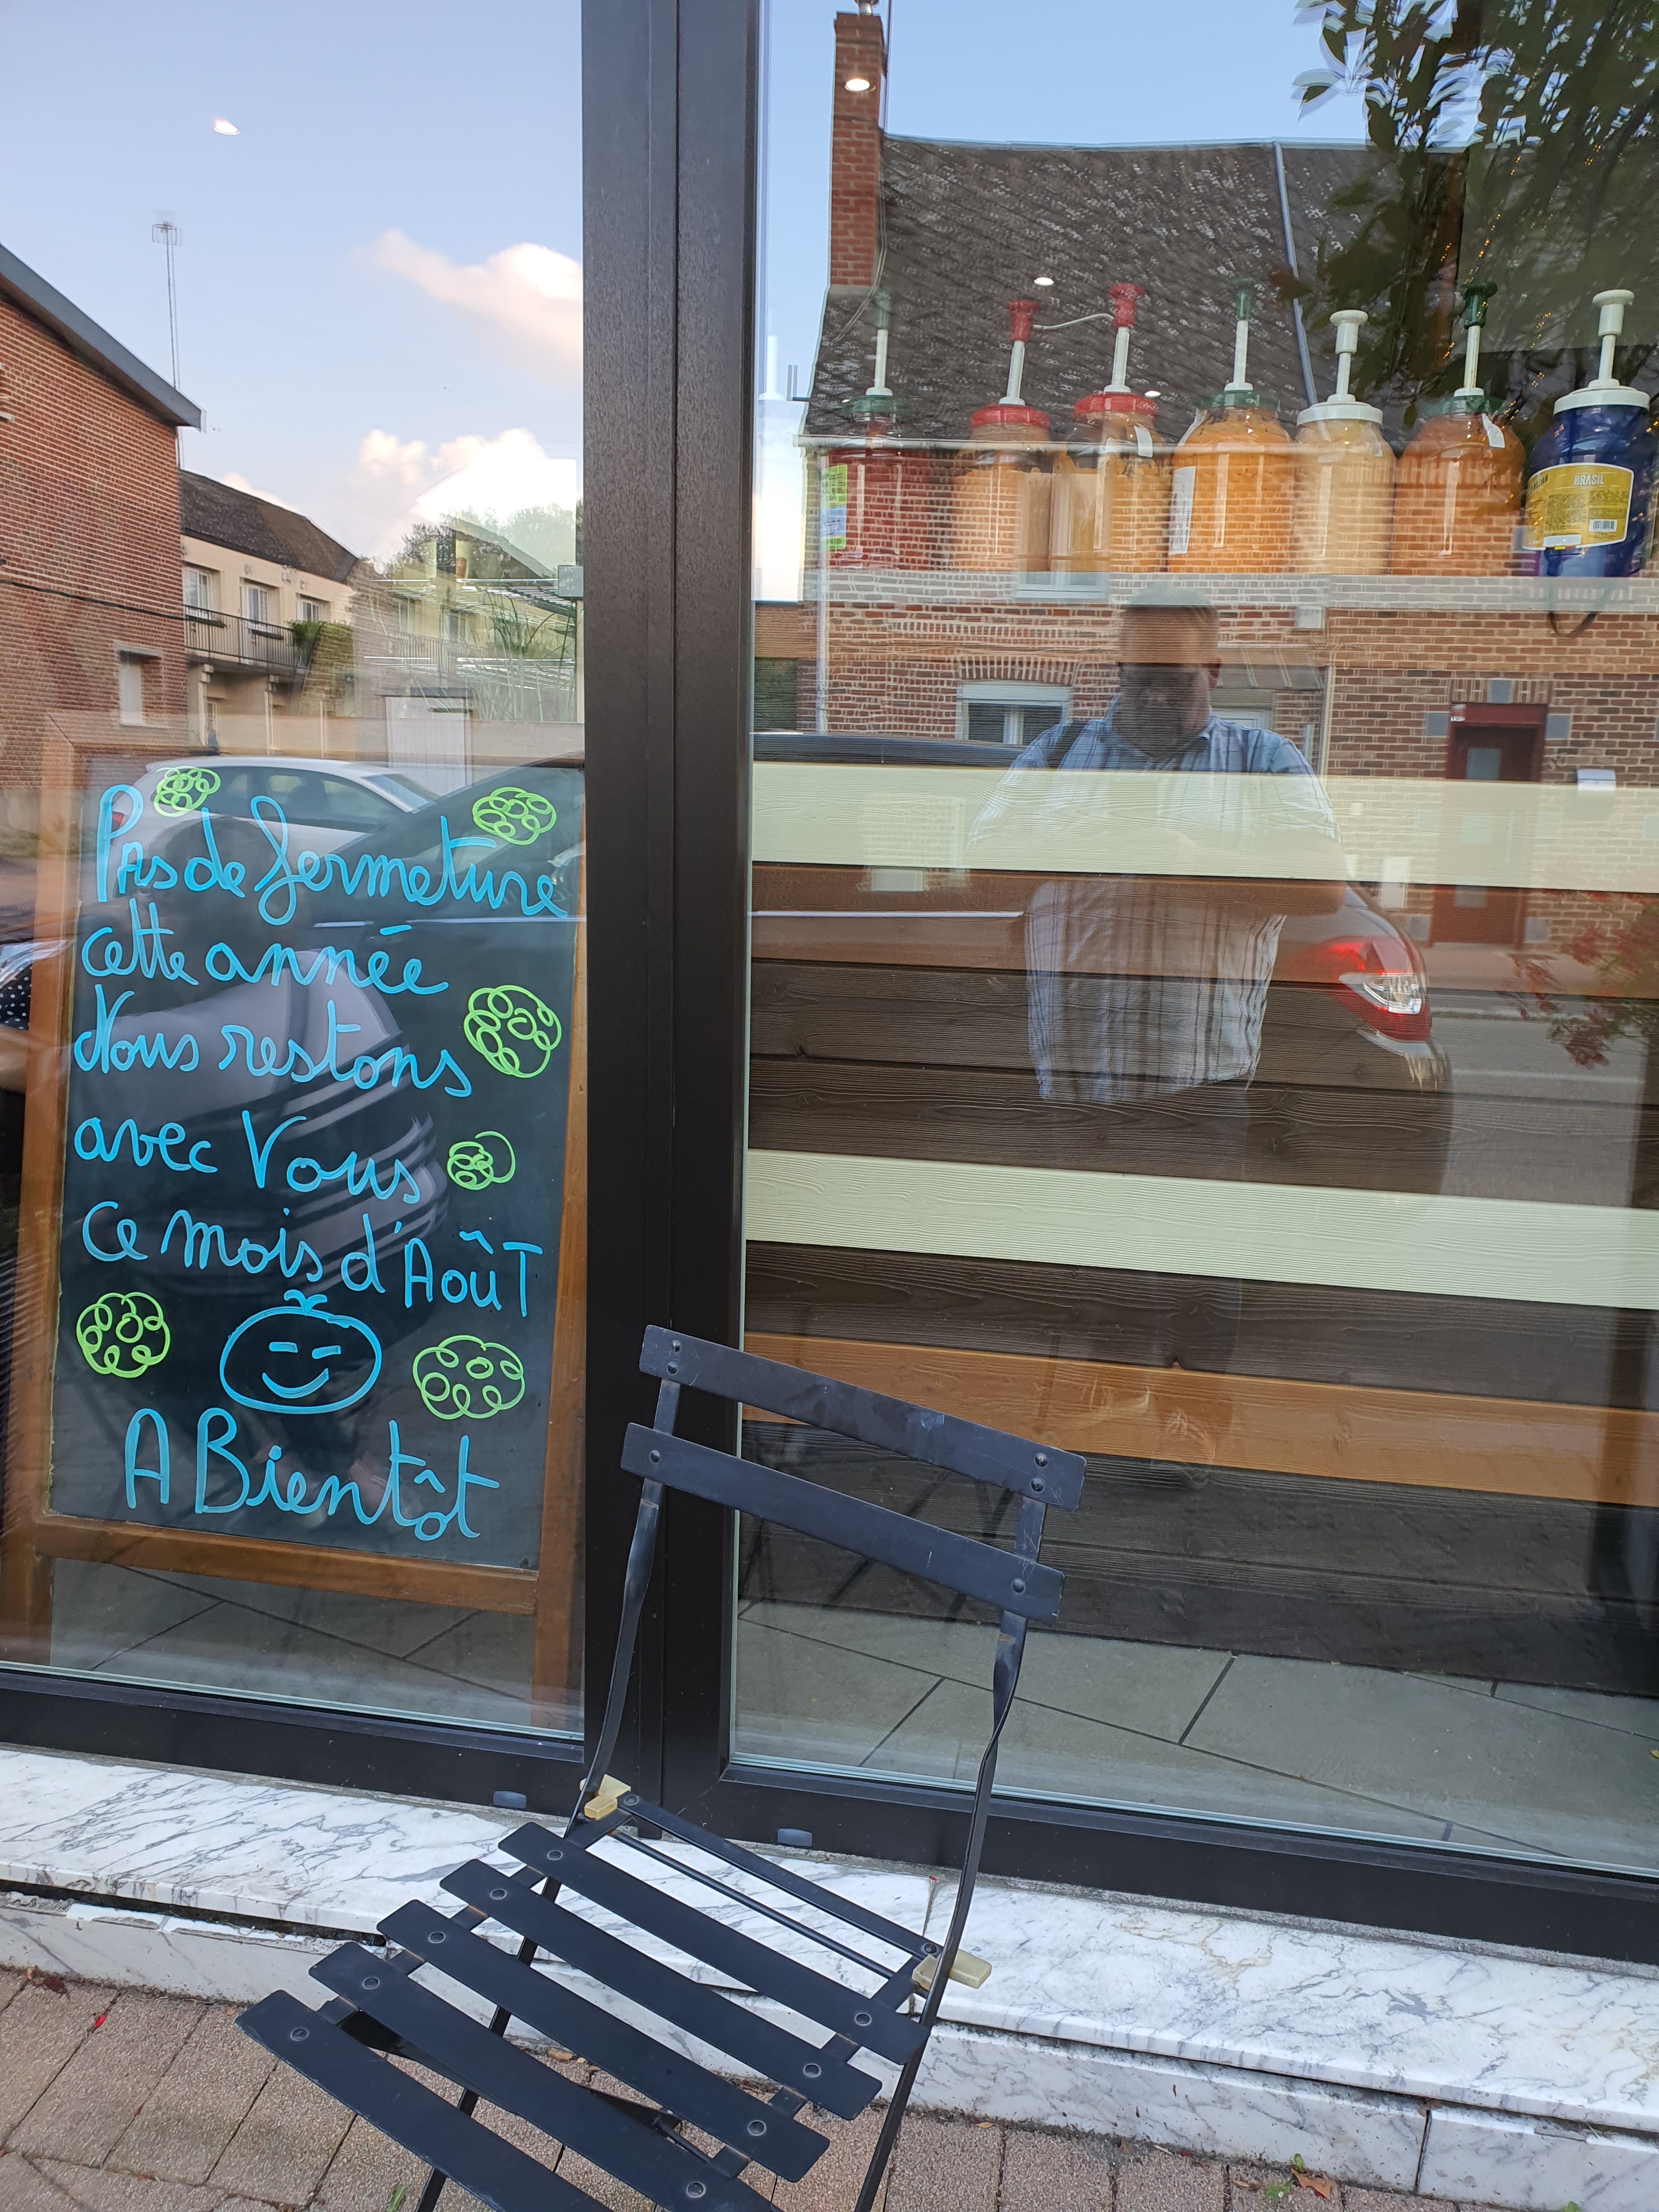 Pas de fermeture
cette année
Nous restons
avec Vous
ce mois d'Août
A Bientôt
BRASIL